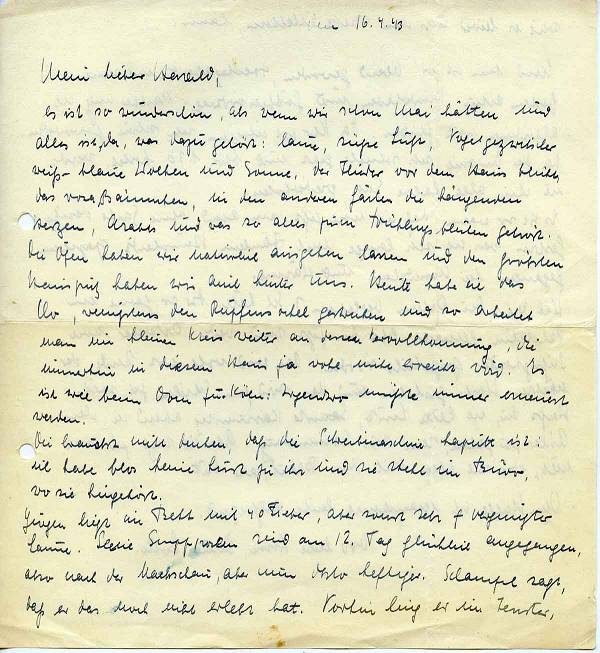 16.4.43
Mein lieber Harald,
es ist so wunderschön, als wenn wir schon Mai hätten und
alles ist da, was dazu gehört: laue, süße Luft, Vogelgezwitscher
weiß-blaue Wolken und Sonne, der Flieder vor dem Haus blüht
das rosa Bäumchen, in den anderen Gärten die hängenden
Herzen, Arabis und was so alles zum Frühlingsblühen gehört.
Die Öfen haben wir natürlich ausgehen lassen und den größten
Hausputz haben wir auch hinter uns. Heute habe ich das
Klo, wenigstens den gestrichen und so arbeitet
man im kleinen Kreis weiter an dessen Vervollkommnung, die
immerhin in diesem Haus ja wohl nicht erreicht wird. Es
ist wie beim Dom zu Köln: Irgendwo müßte immer erneuert
werden.
Du brauchst nicht denken, daß die Schreibmaschine kaputt ist:
ich habe blos keine Lust zu ihr und sie steht im Büro,
wo sie hingehört.
Jürgen liegt im Bett mit 40 Fieber, aber sonst sehr vergnügter
Laune. Seine sind am 12. Tag glücklich angegangen,
also nach der Nachschau, aber nun desto heftiger. sagt,
daß er das noch nicht erlebt hat. Vorhin hing er im Fenster,